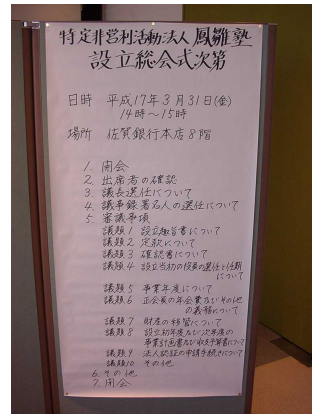 特定非営利活動法人 鳳雛塾
設立総会式次第
日時 平成17年3月31日(金)
14時〜15時
場所 佐賀銀行本店8階
1. 開会
2. 出席者の確認
3. 議長選任について
4. 議事録署名人の選任について
5. 審議事項
議題1 設立趣旨書について
議題2 定款について
議題3 確認書について
議題4 設立当初の役員の選任と任期
について
議題5 事業年度について
議題6 正会員の年会費及びその他
の義務について
議題7 財産の移管について
議題8 設立初年度及び次年度の
事業計画書及び収支予算書について
議題9 法人認証の申請手続きについて
議題10 その他
6. その他
7. 閉会